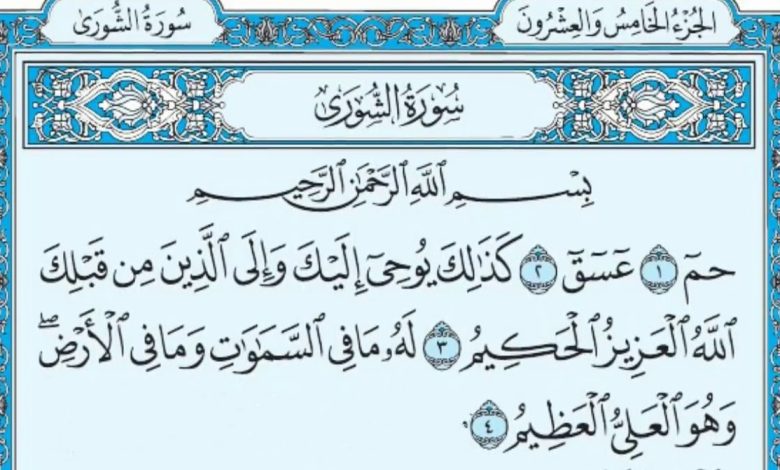 الجُزْءُ الخَامِسُ وَالعِشْرُونَ
سُورَةُ الشُّورَىٰ
سُورَةُ الشُّورَىٰ
بِسْمِ ٱللَّهِ ٱلرَّحْمَٰنِ ٱلرَّحِيمِ
حمٓ ١ عٓسٓقٓ ٢ كَذَٰلِكَ يُوحِىٓ إِلَيْكَ وَإِلَى ٱلَّذِينَ مِن قَبْلِكَ
ٱللَّهُ ٱلْعَزِيزُ ٱلْحَكِيمُ ٣ لَهُۥ مَا فِى ٱلسَّمَٰوَٰتِ وَمَا فِى ٱلْأَرْضِۖ
وَهُوَ ٱلْعَلِىُّ ٱلْعَظِيمُ ٤